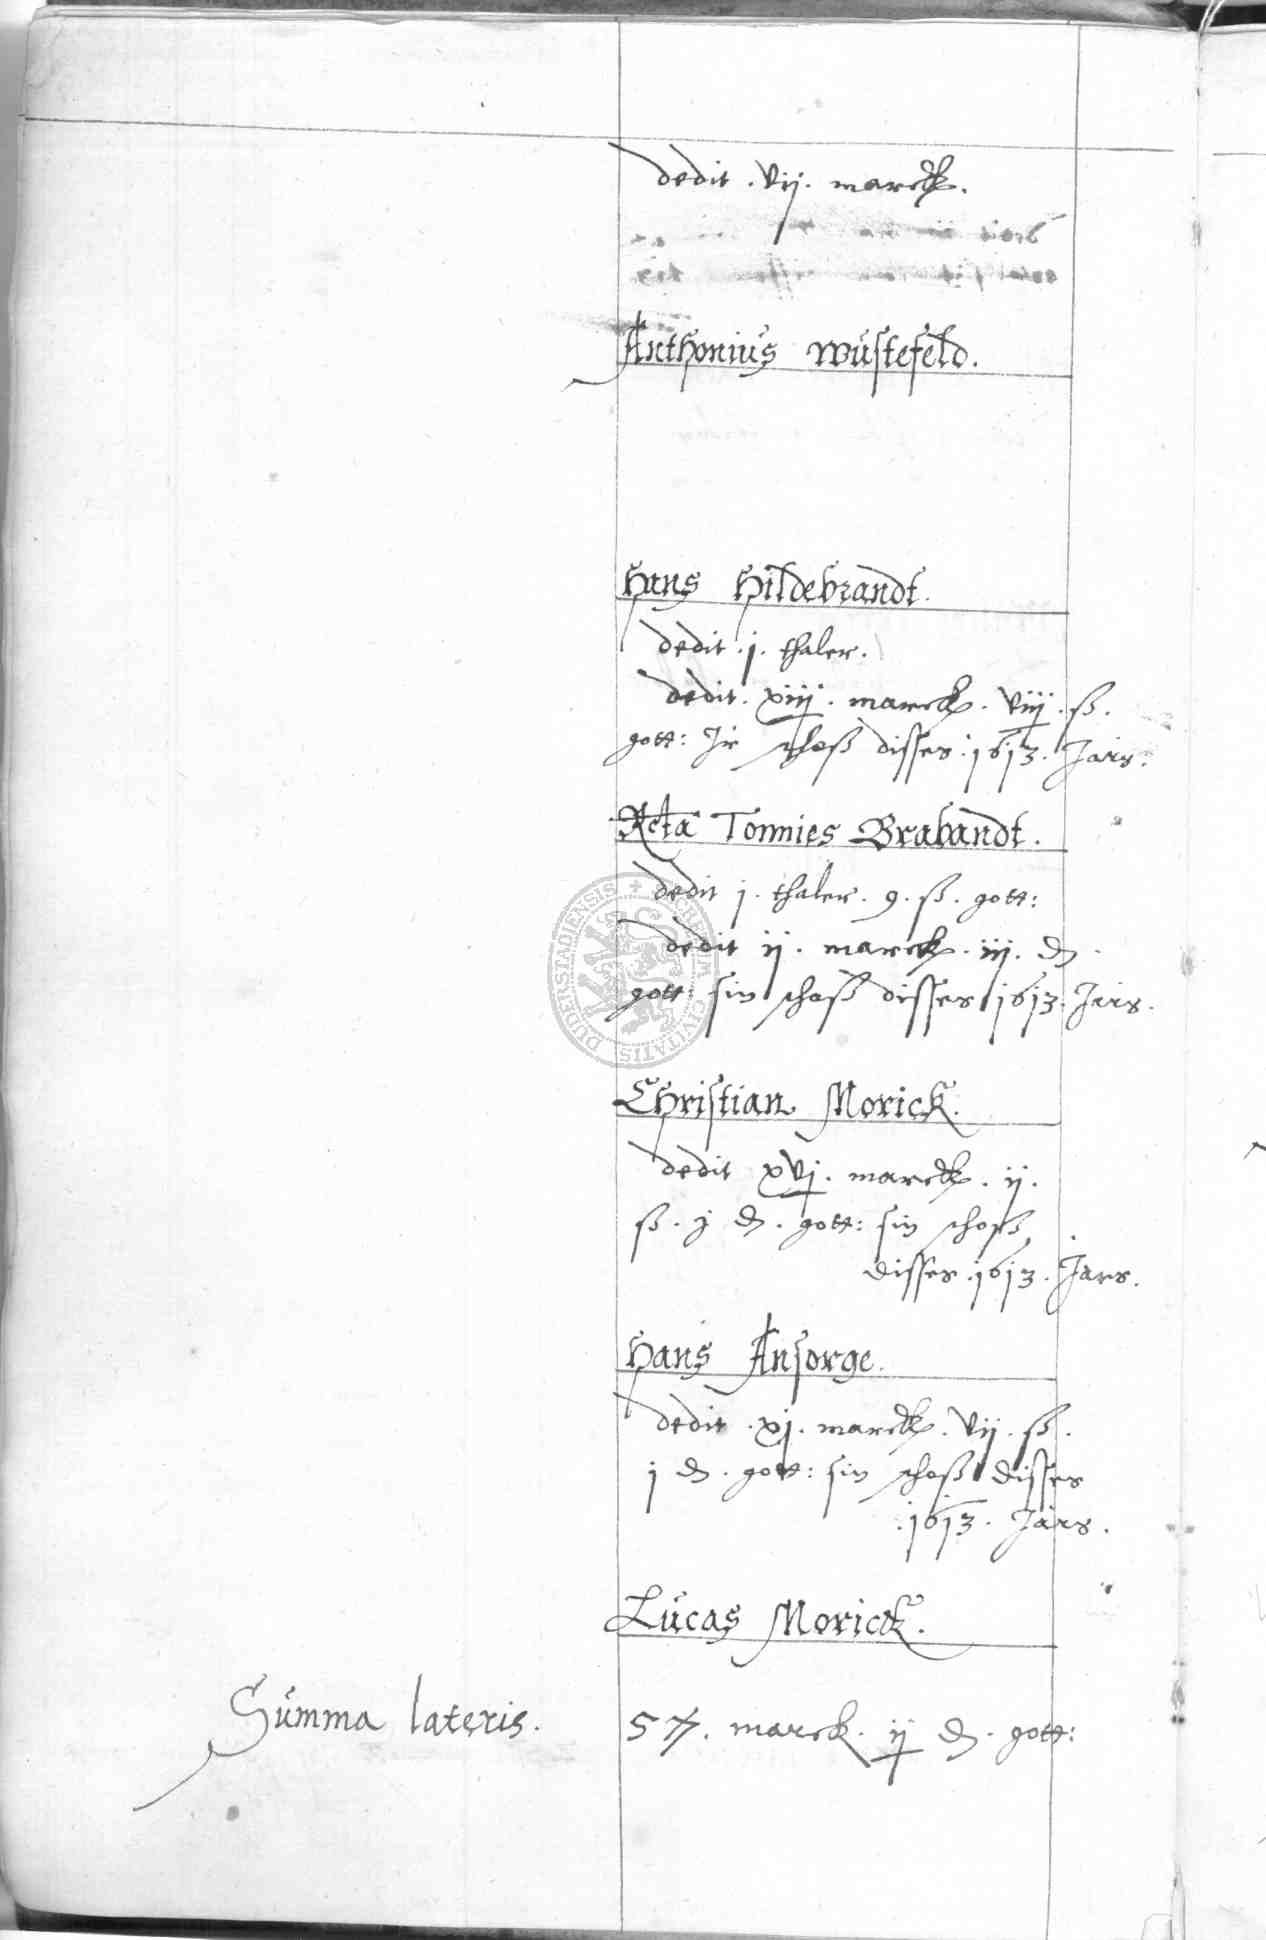 dedit . vij . marck .
Anthonius Wustefeld .
Hans Hildebrandt .
dedit . j . thaler .
dedit . xiiij . marck . viij . ß .
gott : Jr schoß disses . 1613 . Jars .
Relicta Tonnies Brabandt .
dedit j . thaler . 9 . ß . gott :
dedit ij . marck . iij . d
gott : sin schoß disses 1613 . Jars .
SECRETUM CIVITATIS DUDERSTADIENSIS
Christian Morick .
dedit xvj . marck . ij .
ß . j d . gott : sin schoß
disses . 1613 . Jars .
Hans Ansorge .
dedit . xj . marck . vij . ß .
j d . gott : sin schoß disses
. 1613 . Jars .
Lucas Morick .
Summa lateris . 57 . marck . ij d . gott :